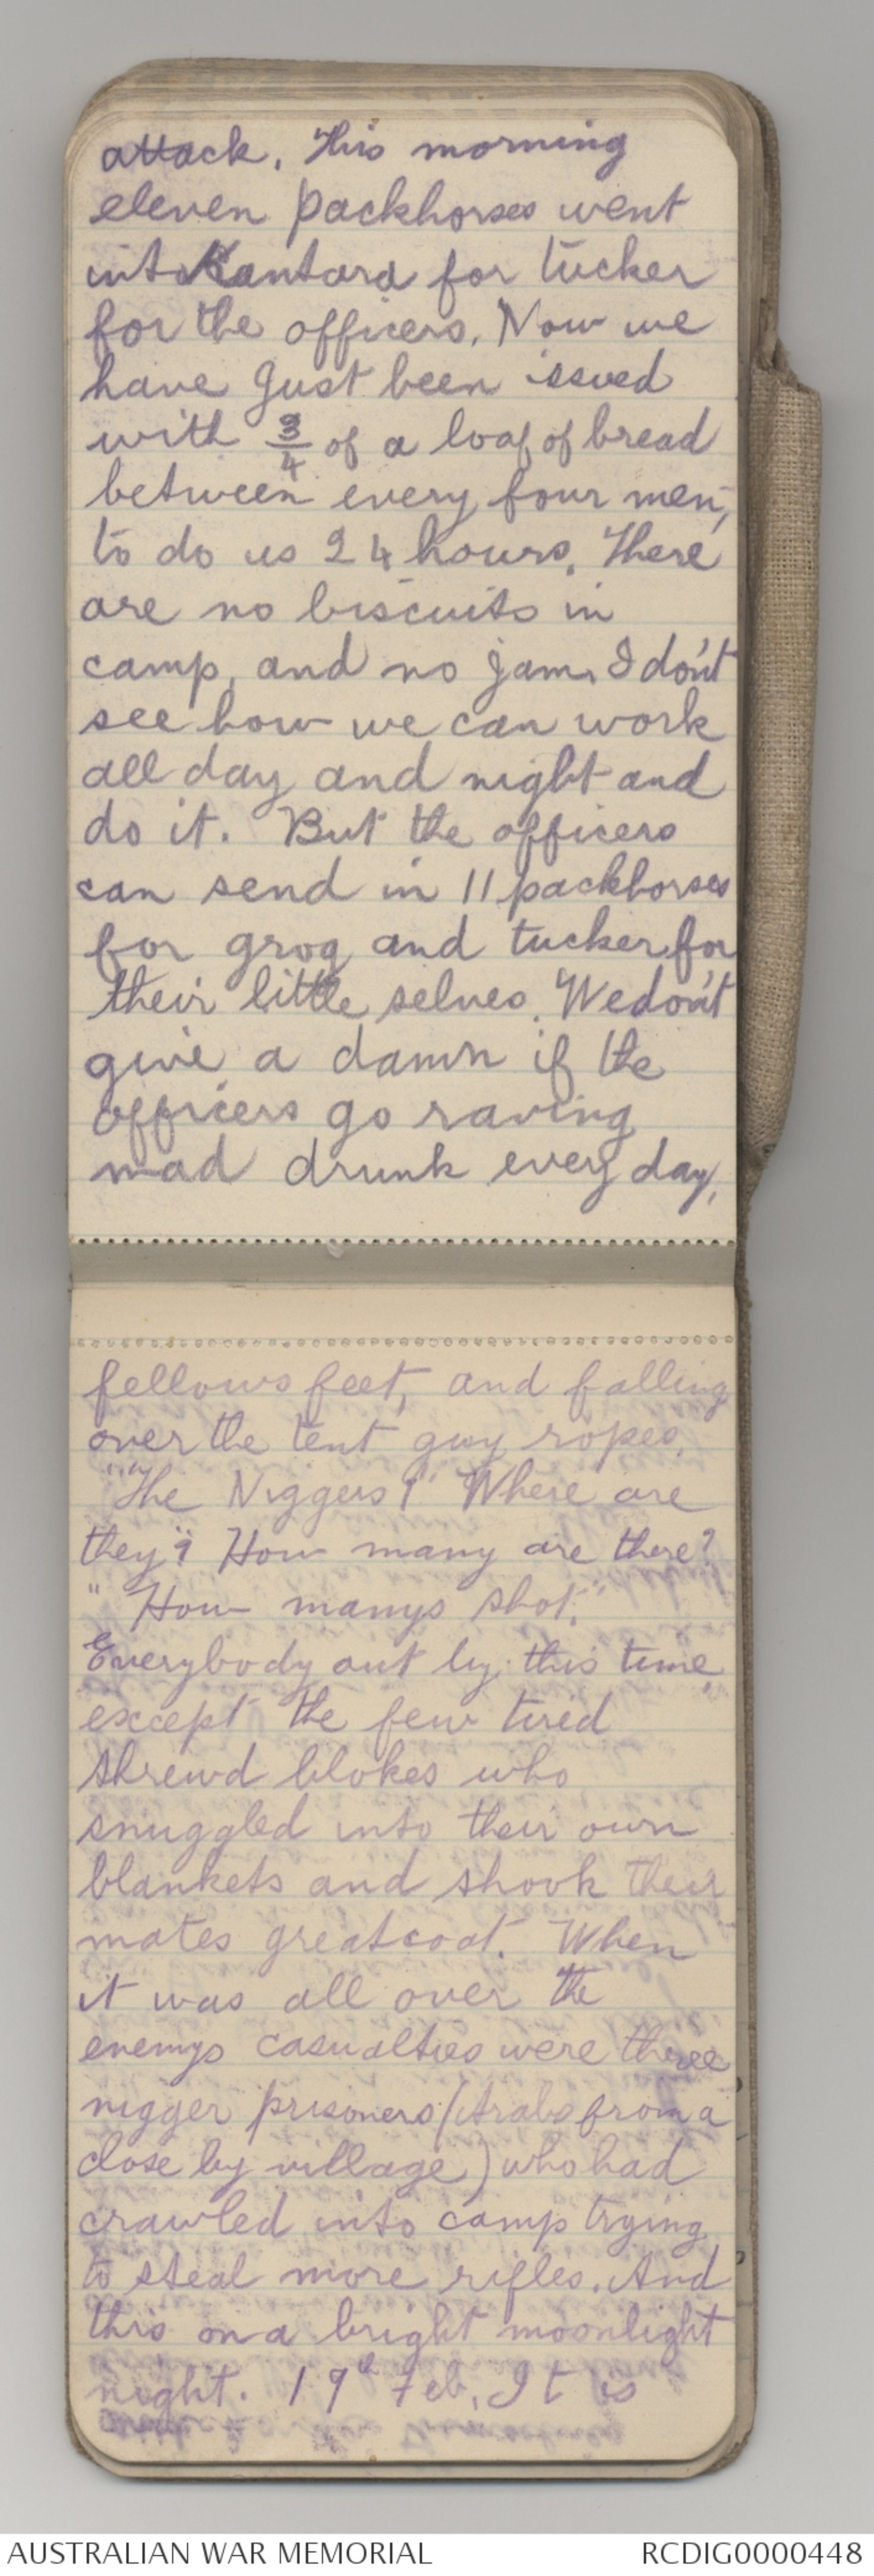 attack. This morning
eleven packhorses went
into Kantara for tucker
for the officers. Now we
have just been issued
with 3/4 of a loaf of bread
between every four men,
to do us 24 hours. There
are no biscuits in
camp, and no jam. I don't
see how we can work
all day and night and
do it. But the officers
can send in 11 packhorses
for grog and tucker for
their little selves. We don't
give a damn if the
officers go raving
mad drunk every day,
fellows feet, and falling
over the tent guy ropes.
"The Niggers!" Where are
they"? How many are there?
" How manys shot."
Everybody out by this time,
except the few tired
shrewd blokes who
snuggled into their own
blankets and shook their
mates greatcoat. When
it was all over the
enemys casualties were three
nigger prisoners (Arabs from a
close by village) who had
crawled into camp trying
to steal more rifles. And
this on a bright moonlight
night. 19th Feb. It is
AUSTRALIAN WAR MEMORIAL
RCDIG0000448